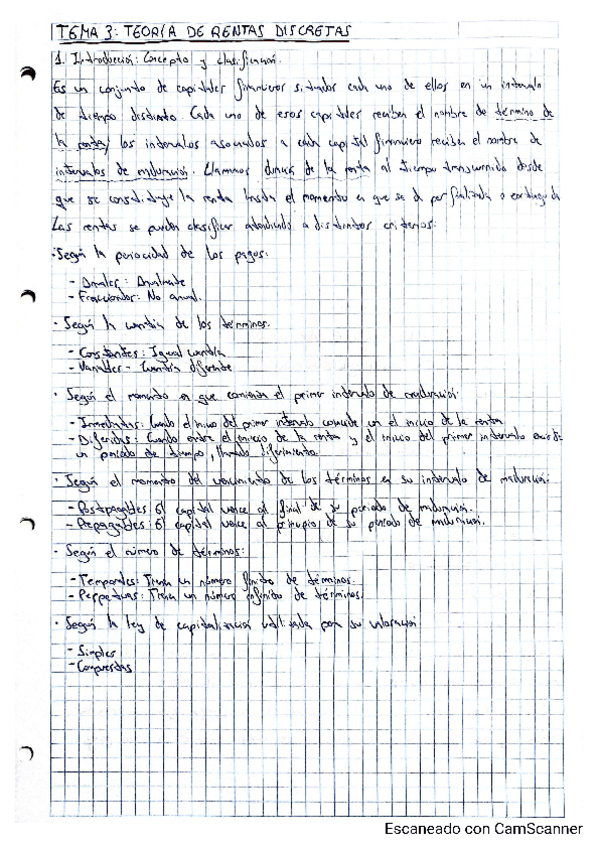 TEMA 3: TEORÍA DE RENTAS DISCRETAS
1. Introducción: Concepto y clasificación.
Es un conjunto de capitales financieros situados cada uno de ellos en un intervalo
de tiempo distinto. Cada uno de esos capitales reciben el nombre de término de
la renta, los intervalos asociados a cada capital financiero reciben el nombre de
intervalos de maduración. Llamamos duración de la renta al tiempo transcurrido desde
que se constituye la renta hasta el momento en que se da por finalizada o extinguida
Las rentas se pueden clasificar atendiendo a distintos criterios:
· Según la periocidad de los pagos:
- Anuales: Anualmente
- Fraccionadas: No anual.
· Según la cuantía de los términos.
- Constantes: Igual cuantía
- Variables - Cuantía diferente
· Según el momento en que comienza el primer intervalo de maduración:
- Inmediatas: Cuando el inicio del primer intervalo coincide con el inicio de la renta
- Diferidas: Cuando entre el inicio de la renta y el inicio del primer intervalo existe
un periodo de tiempo, llamado diferimiento.
· Según el momento del vencimiento de los términos en su intervalo de maduración:
- Postpagables: El capital vence al final de su periodo de maduración.
- Prepagables: El capital vence al principio de su periodo de maduración.
· Según el número de términos:
- Temporales: Tienen un número finito de términos.
- Perpetuas: Tienen un número infinito de términos.
· Según la ley de capitalización utilizada para su valoración
- Simples
- Compuestas
Escaneado con CamScanner